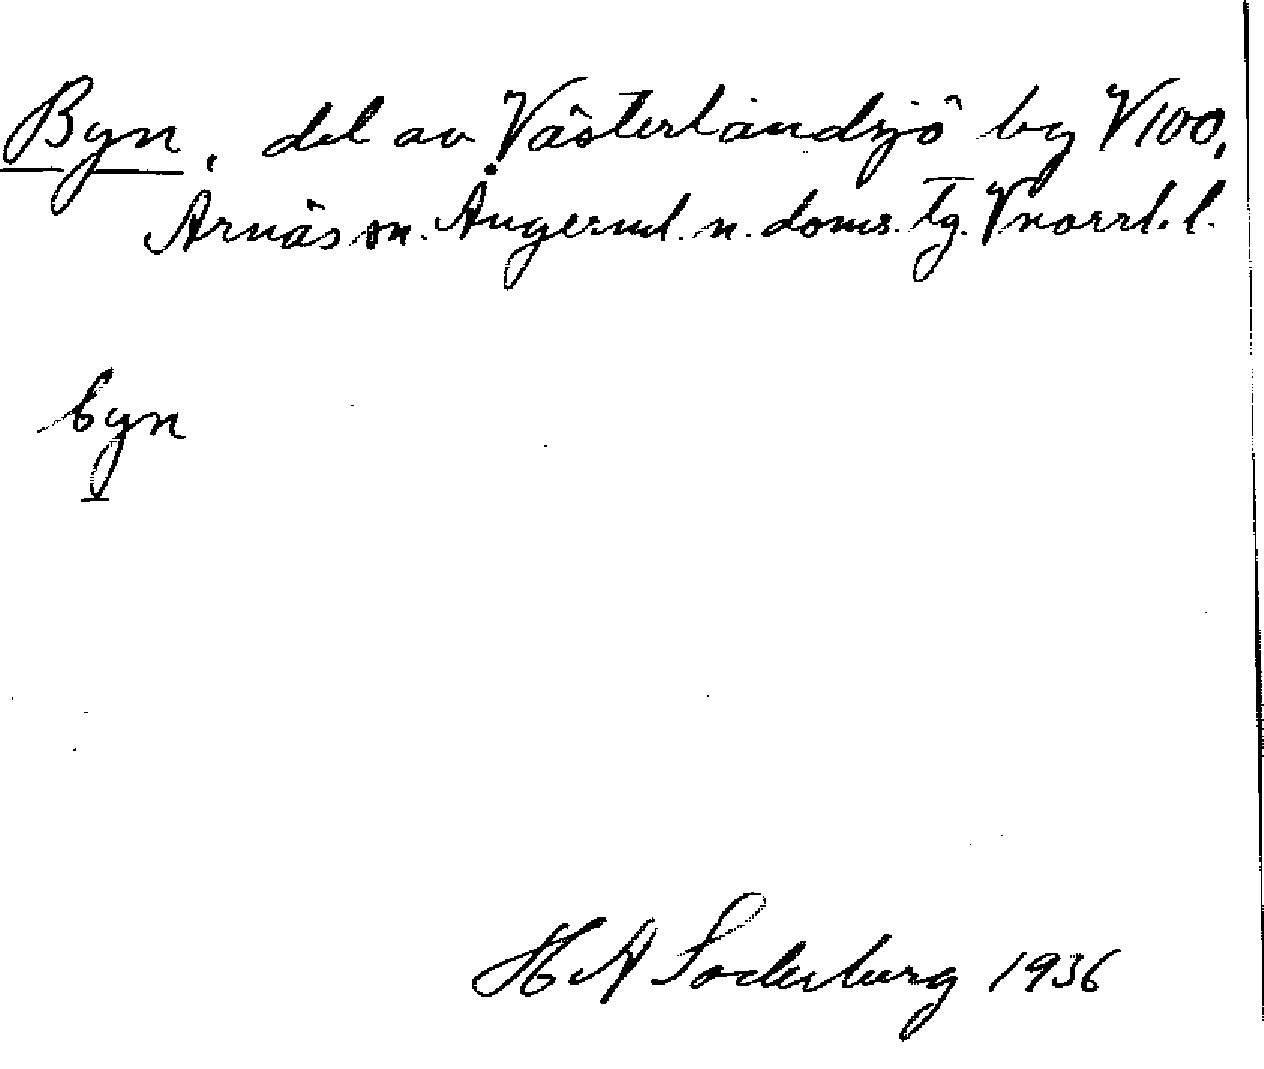 Byn, del av Västerlandsjö by V100,
Arnäs sn. Ångerml. n. doms. tg. Vnorrl. l.
byn
H A Söderberg 1936